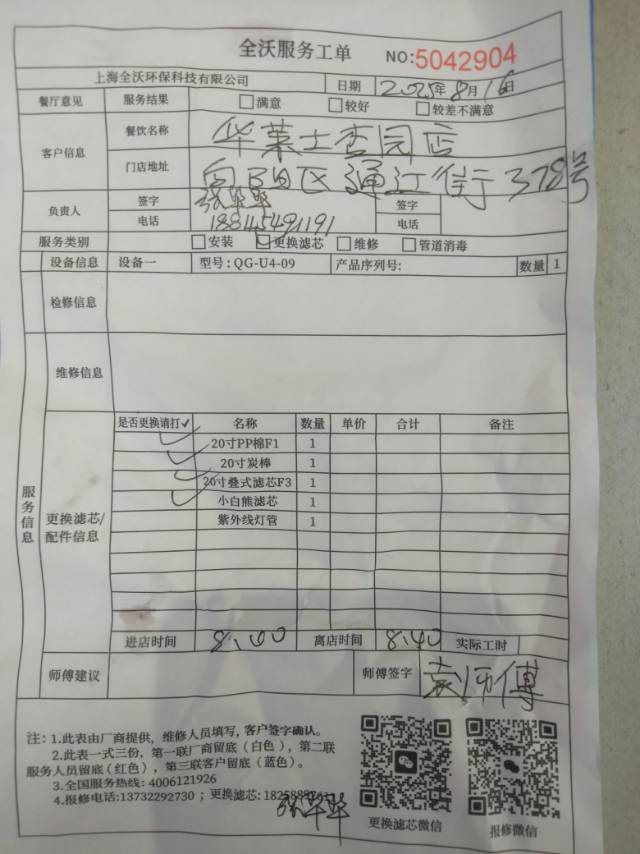 全沃服务工单 NO:5042904
上海全沃环保科技有限公司 日期 2025年8月16日
餐厅意见 服务结果 满意 较好 较差不满意
客户信息 餐饮名称 华莱士杏园店
门店地址 向阳区通江街378号
负责人 签字 签字
电话 18845491191 电话
服务类别 安装 更换滤芯 维修 管道消毒
设备信息 设备一 型号:QG-U4-09 产品序列号: 数量 1
检修信息
维修信息
服务信息
更换滤芯/配件信息
是否更换请打✓ 名称 数量 单价 合计 备注
✓ 20寸PP棉F1 1
✓ 20寸炭棒 1
✓ 20寸叠式滤芯F3 1
✓ 小白熊滤芯 1
紫外线灯管 1
进店时间 8:00 离店时间 8:40 实际工时
师傅建议 师傅签字 袁师傅
注:1.此表由厂商提供,维修人员填写,客户签字确认。
2.此表一式三份,第一联厂商留底(白色),第二联
服务人员留底(红色),第三联客户留底(蓝色)。
3.全国服务热线:4006121926
4.报修电话:13732292730;更换滤芯:
更换滤芯微信 报修微信